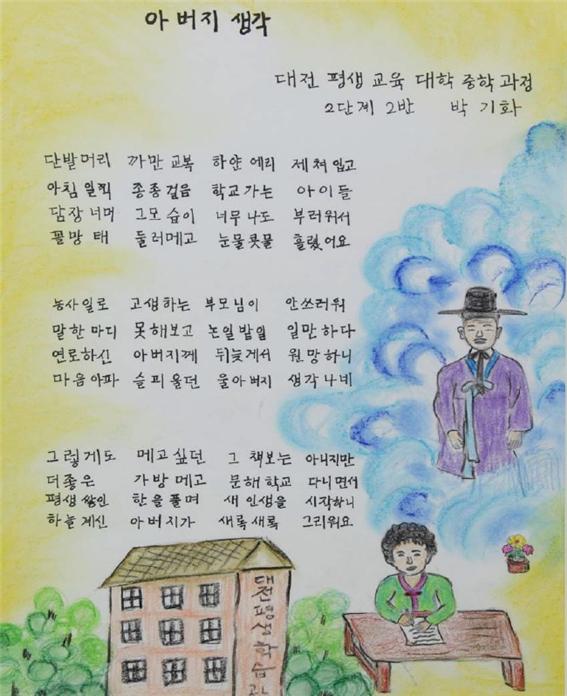 아버지 생각
대전 평생 교육 대학 중학 과정
2단계 2반 박 기화
단발머리 까만 교복 하얀 에리 제쳐 입고
아침 일찍 종종 걸음 학교 가는 아이들
담장 너머 그 모습이 너무 나도 부러워서
꼴망태 둘러메고 눈물 콧물 흘렸어요
농사 일로 고생하는 부모님이 안쓰러워
말 한 마디 못해보고 논일 밭일 일만 하다
연로하신 아버지께 뒤늦게서 원망하니
마음 아파 슬피 울던 울아버지 생각 나네
그렇게도 메고 싶던 그 책보는 아니지만
더 좋은 가방 메고 문해 학교 다니면서
평생 쌓인 한을 풀며 새 인생을 시작하니
하늘 계신 아버지가 새록 새록 그리워요
대전평생학습관